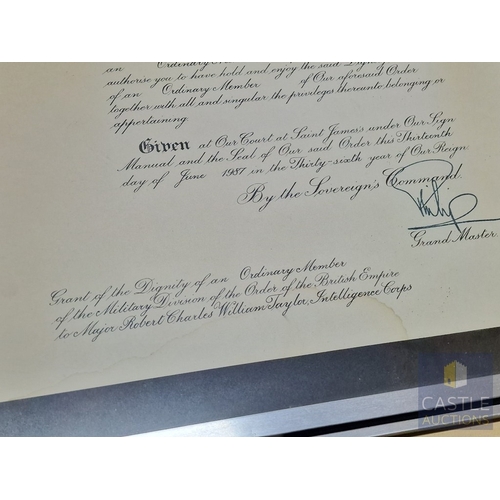 an Ordinary
authorise you to have hold and enjoy the said
of an Ordinary Member of Our aforesaid Order
together with all and singular the privileges thereunto belonging or
appertaining.
Given at Our Court at Saint James's under Our Sign
Manual and the Seal of Our said Order this Thirteenth
day of June 1987 in the Thirty-sixth year of Our Reign.
By the Sovereign's Command.
Philip
Grand Master.
Grant of the Dignity of an Ordinary Member
of the Military Division of the Order of the British Empire
to Major Robert Charles William Taylor, Intelligence Corps
CASTLE
AUCTIONS